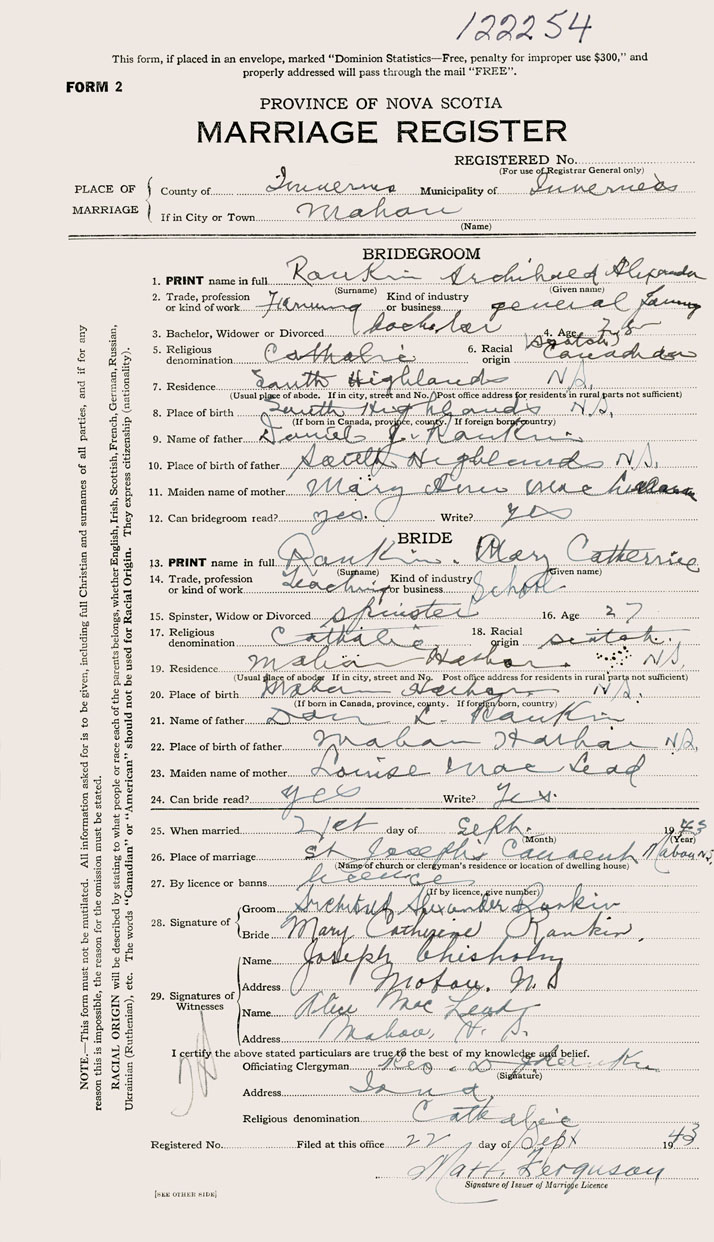 122254
This form, if placed in an envelope, marked "Dominion Statistics—Free, penalty for improper use $300," and
properly addressed will pass through the mail "FREE".
FORM 2
PROVINCE OF NOVA SCOTIA
MARRIAGE REGISTER
REGISTERED No.
(For use of Registrar General only)
PLACE OF MARRIAGE
County of Inverness Municipality of Inverness
If in City or Town Mabou
(Name)
BRIDEGROOM
1. PRINT name in full Rankin Archibald Alexander
(Surname) (Given name)
2. Trade, profession or kind of work Farming Kind of industry or business general farming
3. Bachelor, Widower or Divorced bachelor 4. Age
5. Religious denomination Catholic 6. Racial origin Scotch Canadian
7. Residence South Highlands N.S.
(Usual place of abode. If in city, street and No. Post office address for residents in rural parts not sufficient)
8. Place of birth South Highlands N.S.
(If born in Canada, province, county. If foreign born, country)
9. Name of father Daniel J. Rankin
10. Place of birth of father South Highlands N.S.
11. Maiden name of mother Mary Ann Mac
12. Can bridegroom read? yes. Write? yes
BRIDE
13. PRINT name in full Rankin. Mary Catherine
(Surname) (Given name)
14. Trade, profession or kind of work Teaching Kind of industry or business School
15. Spinster, Widow or Divorced spinster 16. Age 27
17. Religious denomination Catholic 18. Racial origin scotch.
19. Residence Mabou Harbor. N.S.
(Usual place of abode If in city, street and No. Post office address for residents in rural parts not sufficient)
20. Place of birth Mabou Harbor N.S.
(If born in Canada, province, county. If foreign born, country)
21. Name of father Dan L. Rankin
22. Place of birth of father Mabou Harbor N.S.
23. Maiden name of mother Louise Mac Leod
24. Can bride read? yes Write? Yes.
25. When married 21st day of Seph. 1943
(Month) (Year)
26. Place of marriage St Joseph's Convent Mabou N.S.
(Name of church or clergyman's residence or location of dwelling house)
27. By licence or banns licence
(If by licence, give number)
28. Signature of
Groom Archibald Alexander Rankin
Bride Mary Catherine Rankin
29. Signatures of Witnesses
Name Joseph Chisholm
Address Mabou. N.S
Name Alice Mac Leod
Address Mabou, N.S.
I certify the above stated particulars are true to the best of my knowledge and belief.
Officiating Clergyman Rev. D.
(Signature)
Address Iona
Religious denomination Catholic
Registered No. Filed at this office 22 day of Sept 1943
Matt. Ferguson
Signature of Issuer of Marriage Licence
[SEE OTHER SIDE]
NOTE.—This form must not be mutilated. All information asked for is to be given, including full Christian and surnames of all parties, and if for any
reason this is impossible, the reason for the omission must be stated.
RACIAL ORIGIN will be described by stating to what people or race each of the parents belongs, whether English, Irish, Scottish, French, German, Russian,
Ukrainian (Ruthenian), etc. The words "Canadian" or "American" should not be used for Racial Origin. They express citizenship (nationality).